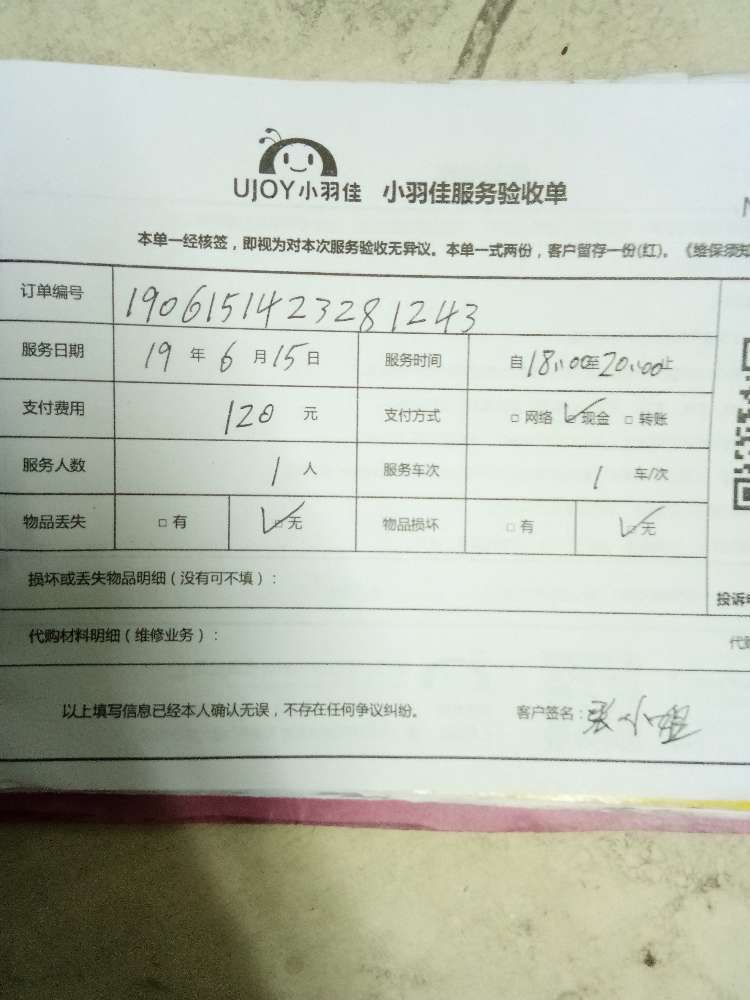 UJOY小羽佳 小羽佳服务验收单
本单一经核签，即视为对本次服务验收无异议。本单一式两份，客户留存一份(红)。《维保须知
订单编号 190615142328 1243
服务日期 19 年 6 月 15 日 服务时间 自 18:00 至 20:00 止
支付费用 120 元 支付方式 □ 网络 ☑ 现金 □ 转账
服务人数 1 人 服务车次 1 车/次
物品丢失 □ 有 ☑ 无 物品损坏 □ 有 ☑ 无
损坏或丢失物品明细（没有可不填）：
投诉
代购材料明细（维修业务）：
代购
以上填写信息已经本人确认无误，不存在任何争议纠纷。 客户签名：张小姐